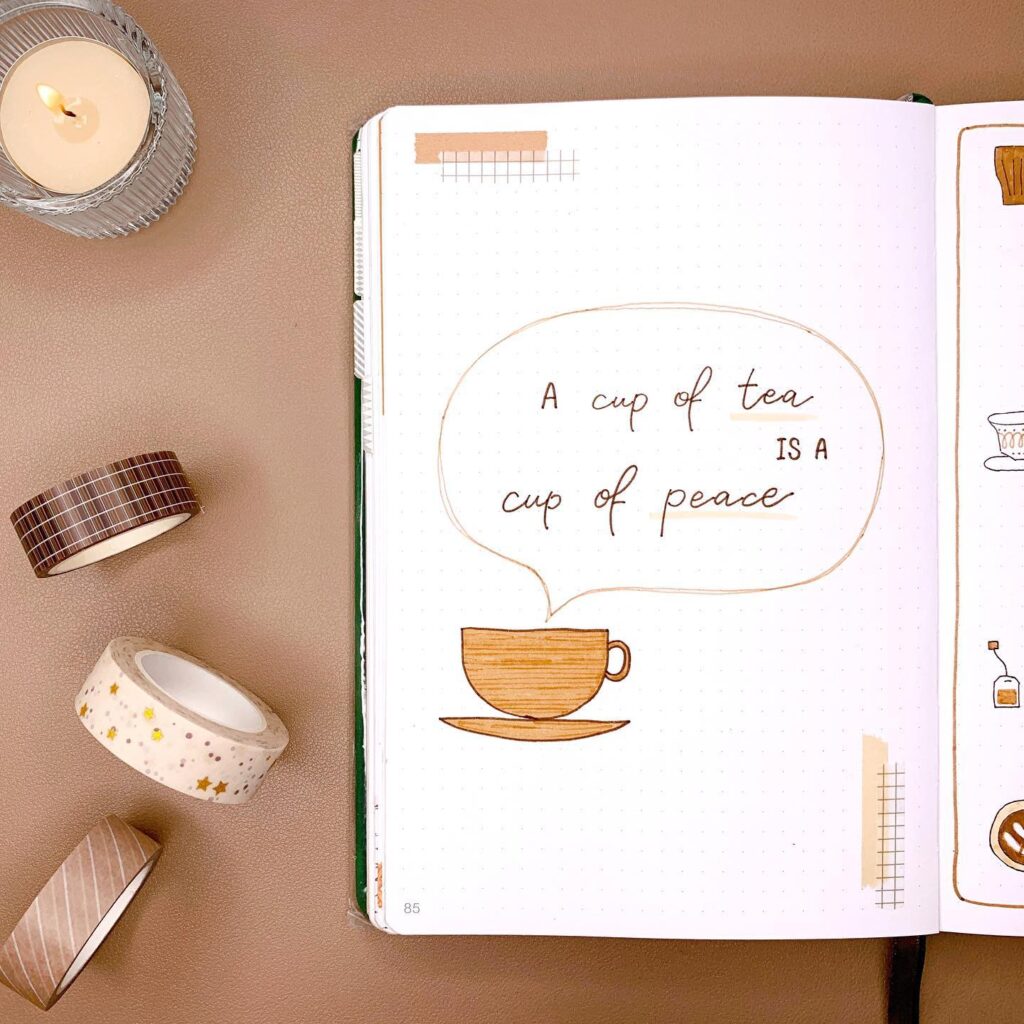 A cup of tea
IS A
cup of peace
85